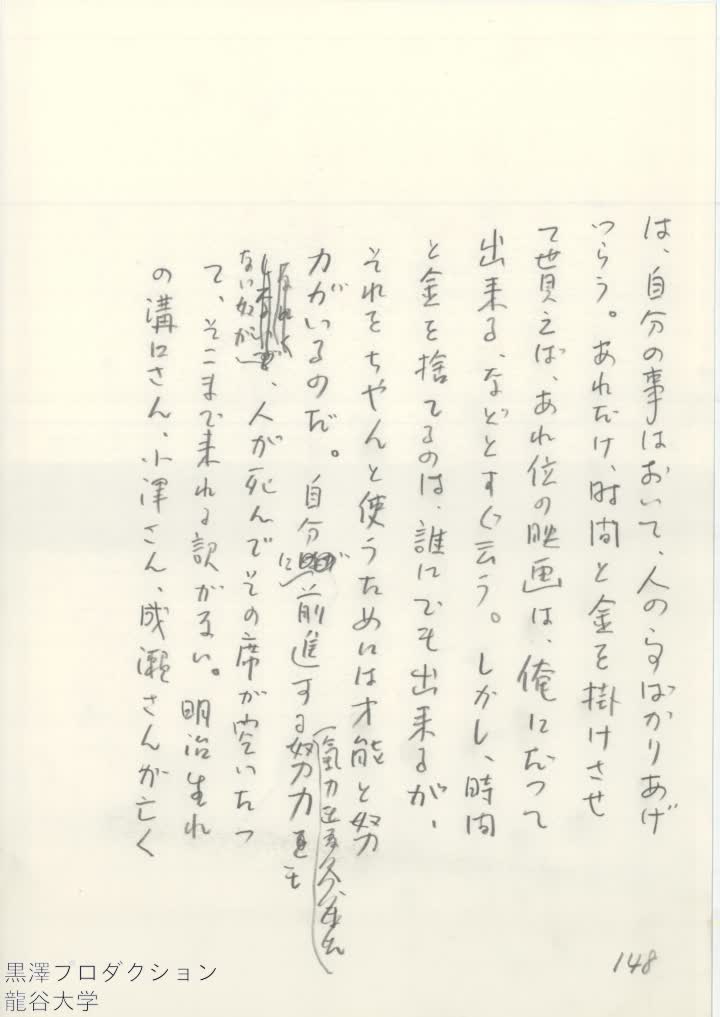 は、自分の事はおいて、人の事ばかりあげ
つらう。あれだけ、時間と金を掛けさせ
て貰えば、あれ位の映画は、俺にだつて
出来る、などとすぐ云う。しかし、時間
と金を捨てるのは、誰にでも出来るが、
それをちやんと使うためには才能と努
力がいるのだ。自分に前進する努力
氣力も
ない奴が、人が死んでその席が空いたつ
て、そこまで来れる訳がない。明治生れ
の溝口さん、小澤さん、成瀬さんが亡く
148
黒澤プロダクション
龍谷大学